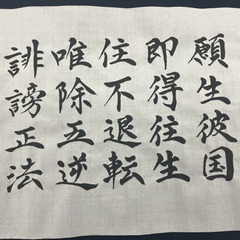 願生彼国
即得往生
住不退転
唯除五逆
誹謗正法